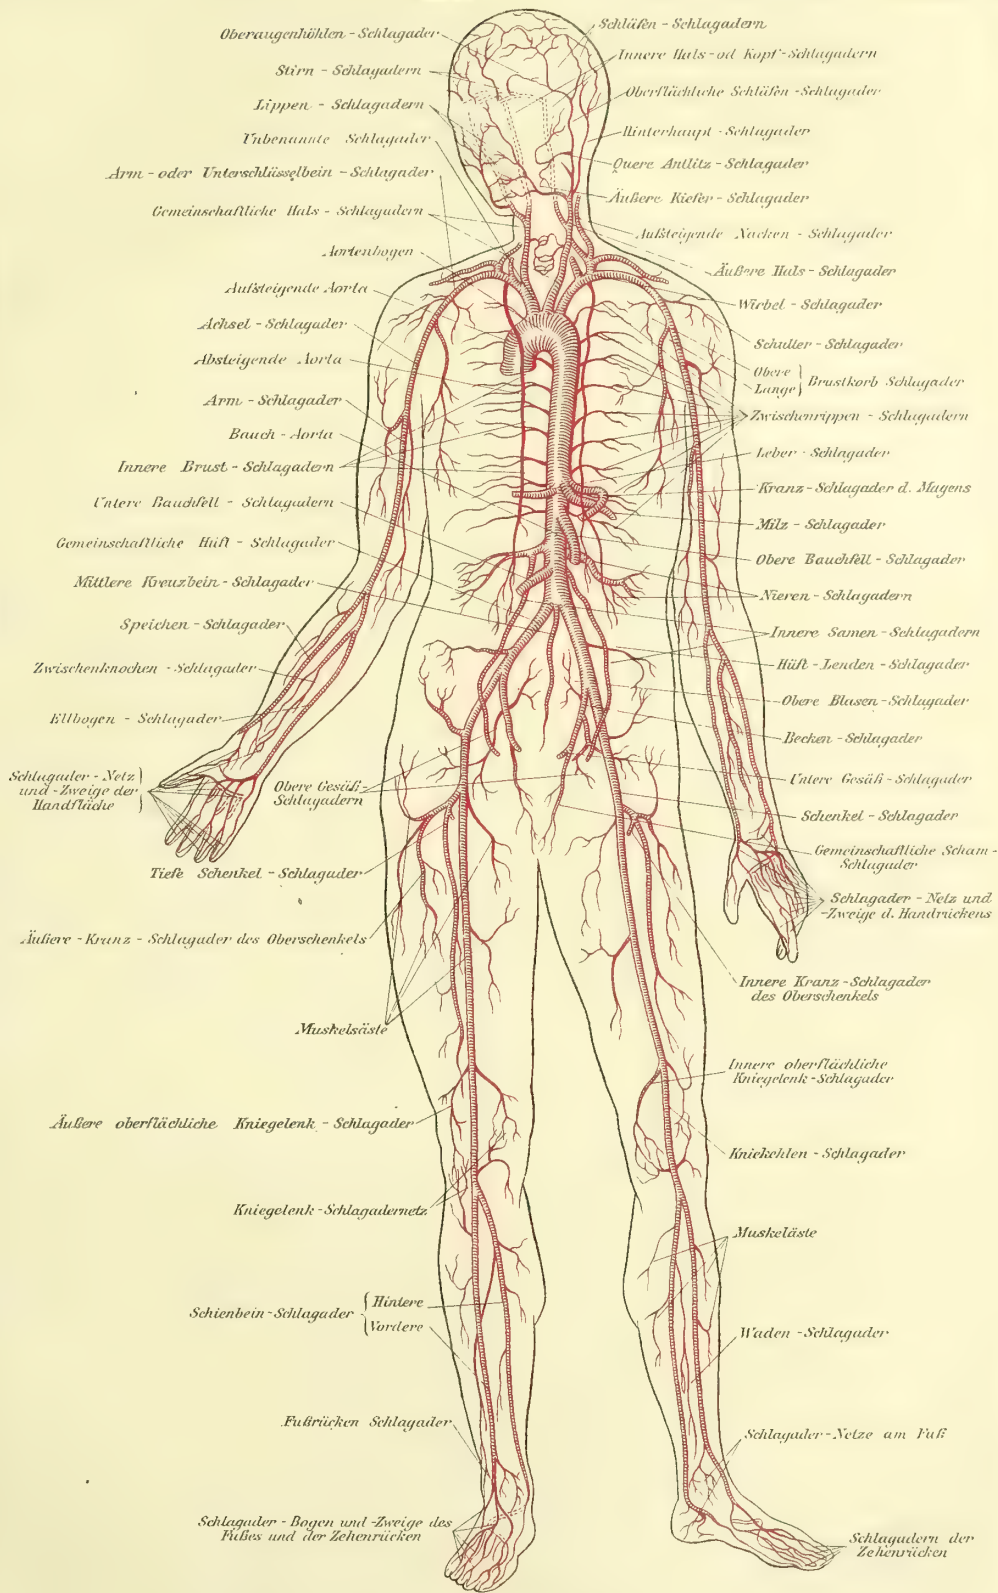 Oberaugenhöhlen - Schlagader
Stirn - Schlagadern
Lippen - Schlagadern
Unbenannte Schlagader
Arm - oder Unterschlüsselbein - Schlagader
Gemeinschaftliche Hals - Schlagadern
Aortenbogen
Aufsteigende Aorta
Achsel - Schlagader
Absteigende Aorta
Arm - Schlagader
Bauch - Aorta
Innere Brust - Schlagadern
Untere Bauchfell - Schlagadern
Gemeinschaftliche Hüft - Schlagader
Mittlere Kreuzbein - Schlagader
Speichen - Schlagader
Zwischenknochen - Schlagader
Ellbogen - Schlagader
Schlagader - Netz
und - Zweige der
Handfläche
Obere Gesäß -
Schlagadern
Tiefe Schenkel - Schlagader
Äußere - Kranz - Schlagader des Oberschenkels
Muskelsäste
Äußere oberflächliche Kniegelenk - Schlagader
Kniegelenk - Schlagadernetz
Schienbein - Schlagader
Hintere
Vordere
Fußrücken Schlagader
Schlagader - Bogen und - Zweige des
Fußes und der Zehenrücken
Schläfen - Schlagadern
Innere Hals - od Kopf - Schlagadern
Oberflächliche Schläfen - Schlagader
Hinterhaupt - Schlagader
Quere Antlitz - Schlagader
Äußere Kiefer - Schlagader
Aufsteigende Nacken - Schlagader
Äußere Hals - Schlagader
Wirbel - Schlagader
Schulter - Schlagader
Obere
Lange
Brustkorb Schlagader
Zwischenrippen - Schlagadern
Leber - Schlagader
Kranz - Schlagader d. Magens
Milz - Schlagader
Obere Bauchfell - Schlagader
Nieren - Schlagadern
Innere Samen - Schlagadern
Hüft - Lenden - Schlagader
Obere Blasen - Schlagader
Becken - Schlagader
Untere Gesäß - Schlagader
Schenkel - Schlagader
Gemeinschaftliche Scham -
Schlagader
Schlagader - Netz und
- Zweige d. Handrückens
Innere Kranz - Schlagader
des Oberschenkels
Innere oberflächliche
Kniegelenk - Schlagader
Kniekehlen - Schlagader
Muskeläste
Waden - Schlagader
Schlagader - Netze am Fuß
Schlagadern der
Zehenrücken